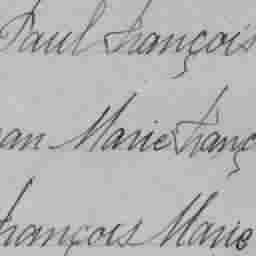 Paul François
an Marie Franç
François Marie